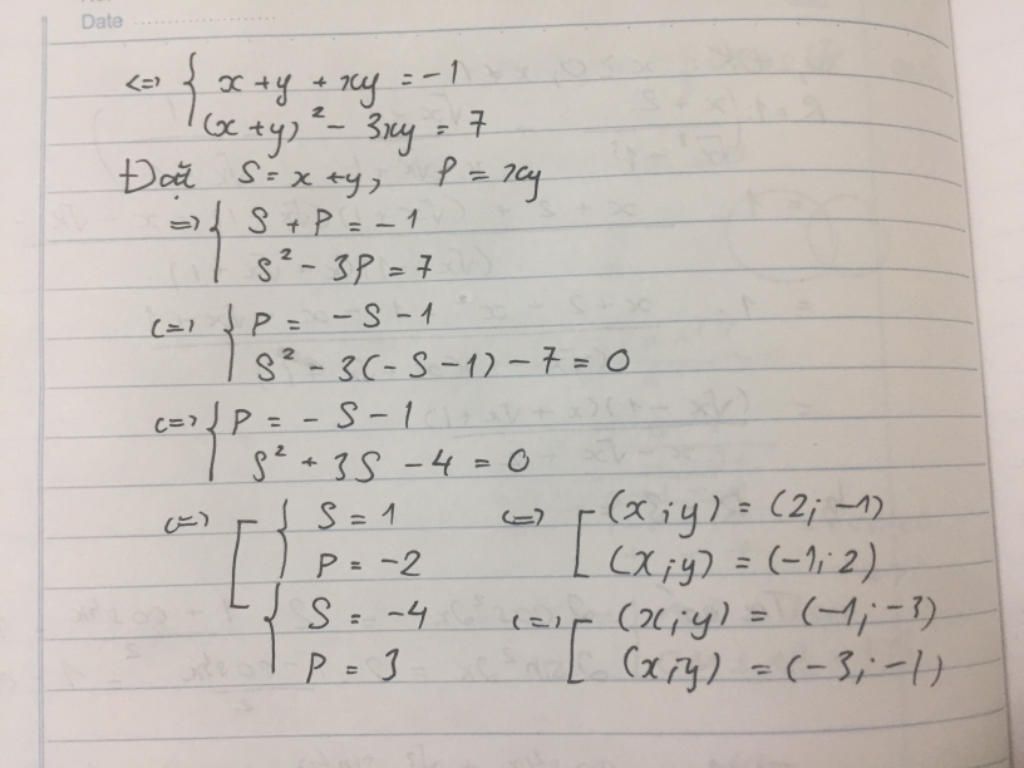 Date
<=> { x + y + xy = -1
(x + y)² - 3xy = 7
Đặt S = x + y, P = xy
=> { S + P = -1
S² - 3P = 7
<=> { P = -S - 1
S² - 3(-S - 1) - 7 = 0
<=> { P = -S - 1
S² + 3S - 4 = 0
<=> [ { S = 1 <=> [ (x; y) = (2; -1)
P = -2 (x; y) = (-1; 2)
{ S = -4 <=> [ (x; y) = (-1; -3)
P = 3 (x; y) = (-3; -1)